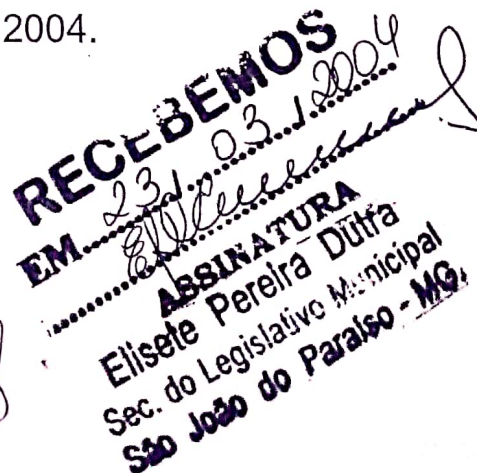 2004.
RECEBEMOS
EM 23 / 03 / 2004
ASSINATURA
Elisete Pereira Dutra
Sec. do Legislativo Municipal
São João do Paraíso - MG.